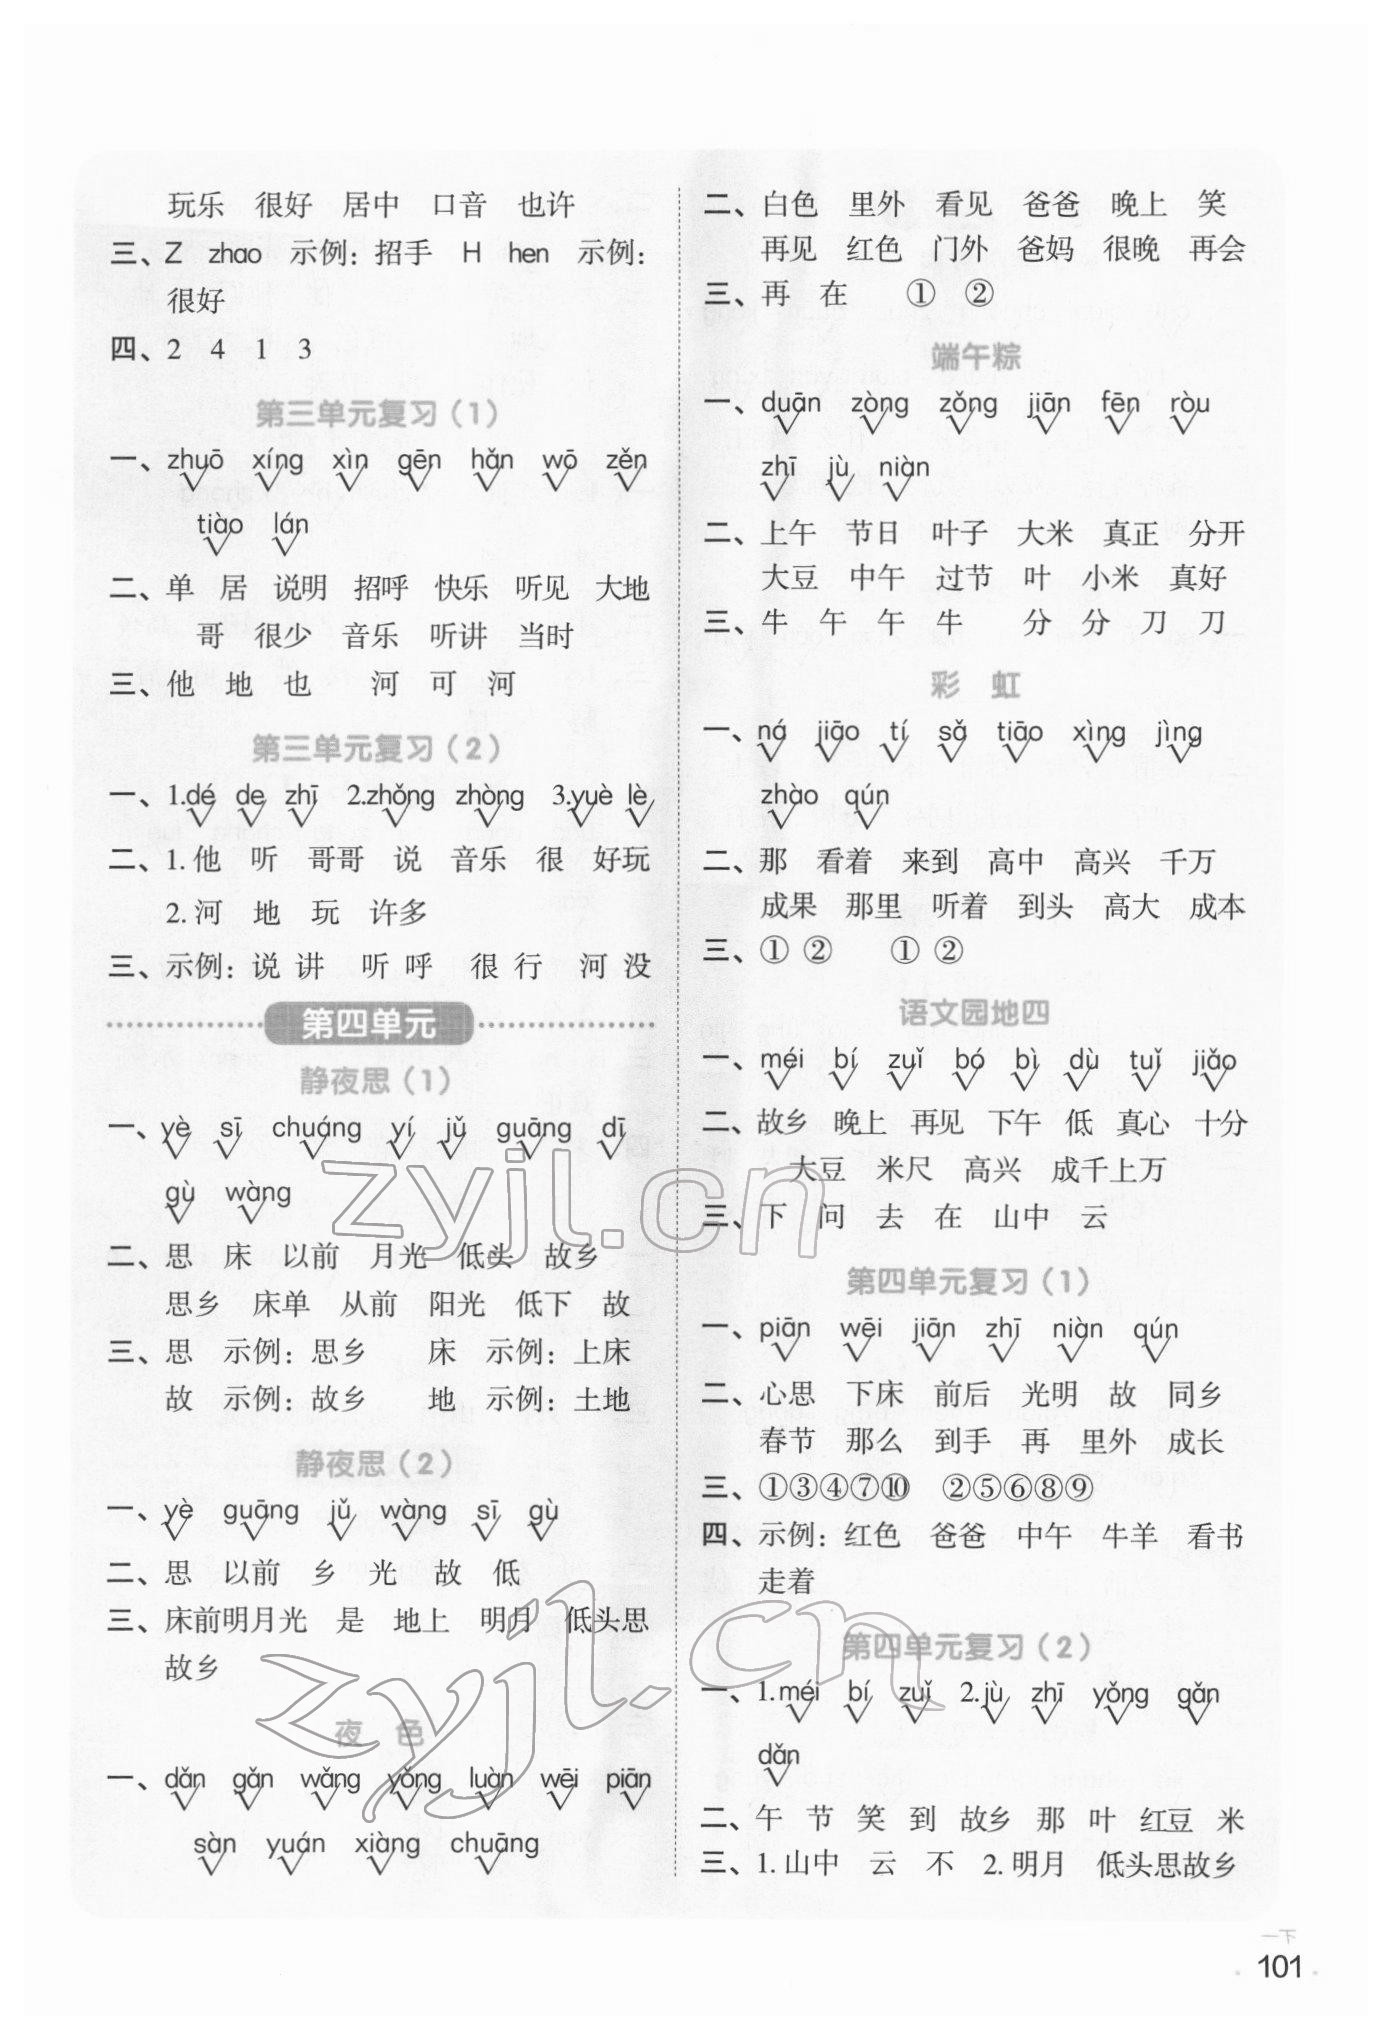 玩乐 很好 居中 口音 也许
三、Z zhao 示例：招手 H hen 示例：
很好
四、2 4 1 3
第三单元复习（1）
一、zhuō xíng xìn gēn hǎn wō zěn
tiào lán
二、单 居 说明 招呼 快乐 听见 大地
哥 很少 音乐 听讲 当时
三、他 地 也 河 可 河
第三单元复习（2）
一、1.dé de zhī 2.zhǒng zhòng 3.yuè lè
二、1.他 听 哥哥 说 音乐 很 好玩
2.河 地 玩 许多
三、示例：说 讲 听 呼 很 行 河 没
第四单元
静夜思（1）
一、yè sī chuáng yí jǔ guāng dī
gù wàng
二、思 床 以前 月光 低头 故乡
思乡 床单 从前 阳光 低下 故
三、思 示例：思乡 床 示例：上床
故 示例：故乡 地 示例：土地
静夜思（2）
一、yè guāng jǔ wàng sī gù
二、思 以前 乡 光 故 低
三、床前明月光 是 地上 明月 低头思
故乡
夜 色
一、dǎn gǎn wǎng yǒng luàn wēi piān
sàn yuán xiàng chuāng
二、白色 里外 看见 爸爸 晚上 笑
再见 红色 门外 爸妈 很晚 再会
三、再 在 ① ②
端午粽
一、duān zòng zǒng jiān fēn ròu
zhī jù niàn
二、上午 节日 叶子 大米 真正 分开
大豆 中午 过节 叶 小米 真好
三、牛 午 午 牛 分 分 刀 刀
彩 虹
一、ná jiāo tí sǎ tiāo xìng jìng
zhào qún
二、那 看着 来到 高中 高兴 千万
成果 那里 听着 到头 高大 成本
三、① ② ① ②
语文园地四
一、méi bí zuǐ bó bì dù tuǐ jiǎo
二、故乡 晚上 再见 下午 低 真心 十分
大豆 米尺 高兴 成千上万
三、下 问 去 在 山中 云
第四单元复习（1）
一、piān wēi jiān zhī niàn qún
二、心思 下床 前后 光明 故 同乡
春节 那么 到手 再 里外 成长
三、①③④⑦⑩ ②⑤⑥⑧⑨
四、示例：红色 爸爸 中午 牛羊 看书
走着
第四单元复习（2）
一、1.méi bí zuǐ 2.jù zhī yǒng gǎn
dǎn
二、午 节 笑 到 故乡 那 叶 红豆 米
三、1.山中 云 不 2.明月 低头思故乡
一下
101
zyjl.cn
zyjl.cn